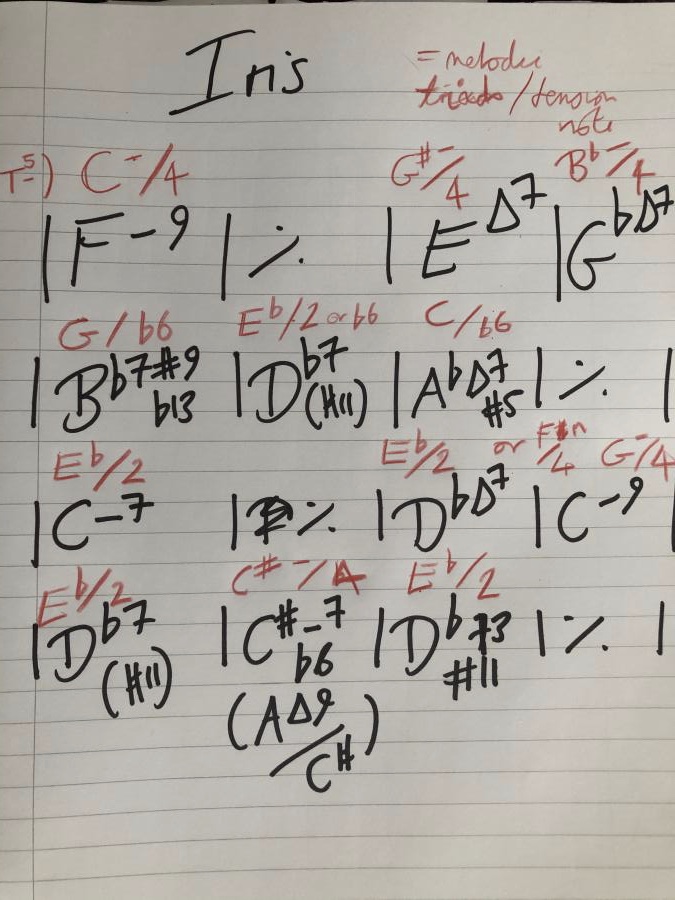 Iris
= melodic
triads / tension
note
T-5) C-/4 G#-/4 Bb-/4
| F-9 | ٪ | EΔ7 | GbΔ7
G/b6 Eb/2 or b6 C/b6
| Bb7#9 b13 | Db7 (#11) | AbΔ7 #5 | ٪ |
Eb/2 Eb/2 or F /4 G-/4
| C-7 | ٪ | DbΔ7 | C-9 |
Eb/2 C#-/A Eb/2
| Db7 (#11) | C#-7 b6 | Db 13 #11 | ٪ |
(AΔ9/C#)